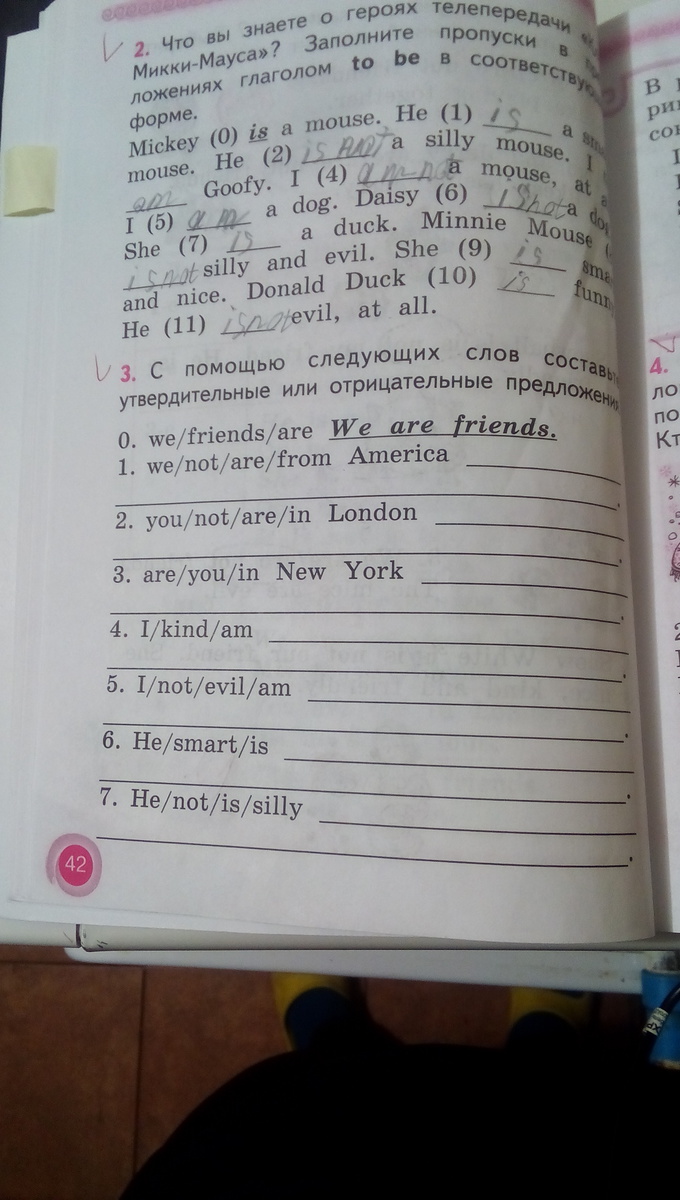 2. Что вы знаете о героях телепередачи
Микки-Мауса»? Заполните пропуски в
ложениях глаголом to be в соответствую
форме.
Mickey (0) is a mouse. He (1) is a sma
mouse. He (2) is not a silly mouse. I
am Goofy. I (4) am not a mouse, at a
I (5) am a dog. Daisy (6) is not a dog
She (7) is a duck. Minnie Mouse (
is not silly and evil. She (9) is sma
and nice. Donald Duck (10) is funn
He (11) is not evil, at all.
3. С помощью следующих слов составьте
утвердительные или отрицательные предложения
0. we/friends/are We are friends.
1. we/not/are/from America
.
2. you/not/are/in London
.
3. are/you/in New York
.
4. I/kind/am
.
5. I/not/evil/am
.
6. He/smart/is
.
7. He/not/is/silly
.
42
В
ри
со
4.
ло
по
Кт